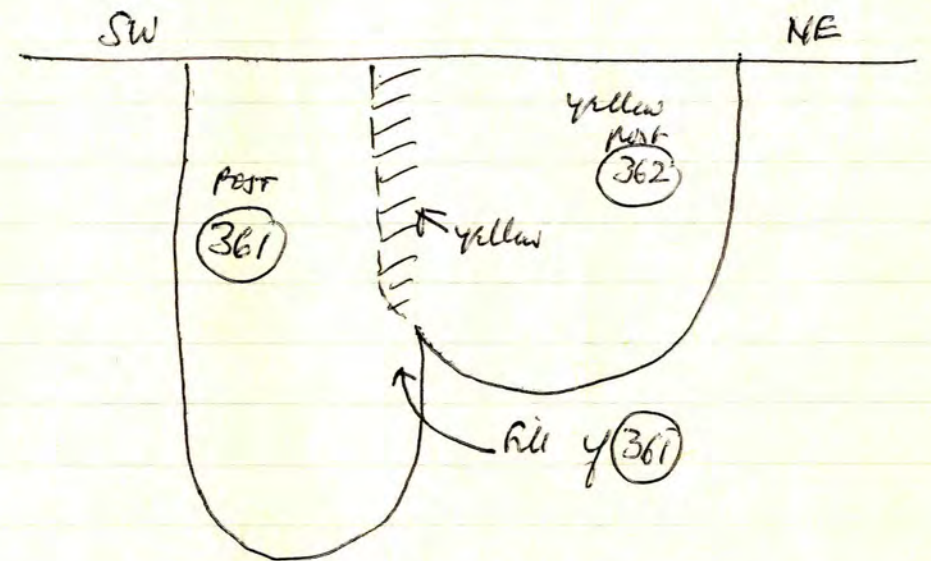 SW
NE
yellow
POST
362
POST
361
yellow
fill of 361